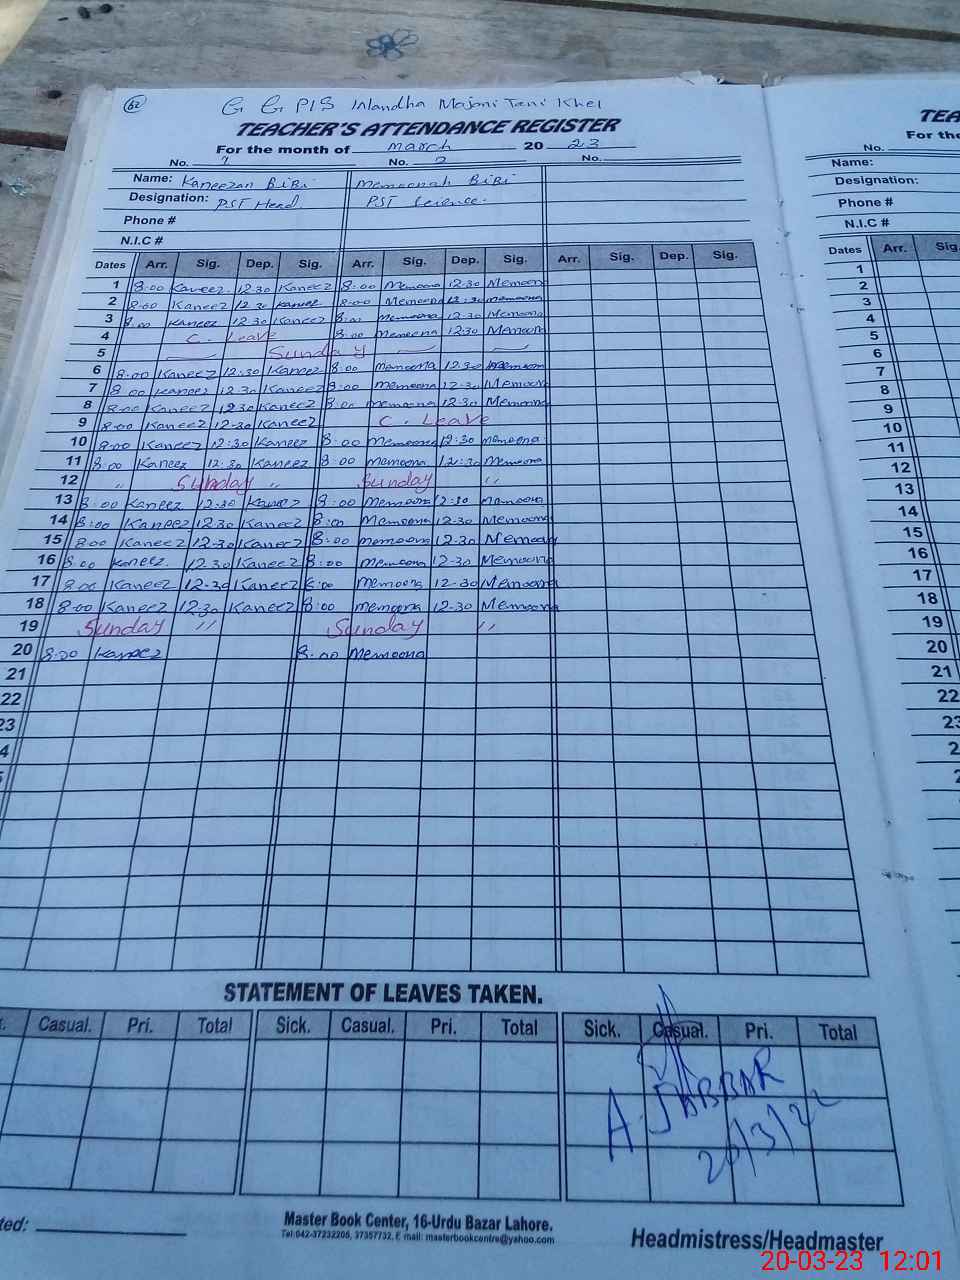 62
G G P/S Inlandha Majoni Tani Khel
TEACHER'S ATTENDANCE REGISTER
For the month of March 2023
No. 1 No. 2 No.
Name: Kaneezan BiBi Memoonah BiBi
Designation: PST Head. PST Science.
Phone #
N.I.C #
Dates Arr. Sig. Dep. Sig. Arr. Sig. Dep. Sig. Arr. Sig. Dep. Sig.
1 8:00 Kaneez 12.30 Kaneez 8:00 Memoona 12.30 Memoon
2 8:00 Kaneez 12.30 Kaneez 8:00 Memoona 12:30 Memoona
3 8:00 Kaneez 12.30 Kaneez 8:00 Memoona 12:30 Memoona
4 C. Leave 8:00 Memoona 12:30 Memoon
5 Sunday
6 8:00 Kaneez 12:30 Kaneez 8:00 Memoona 12.30 Memoona
7 8:00 Kaneez 12.30 Kaneez 8:00 Memoona 12-30 Memoona
8 8:00 Kaneez 12.30 Kaneez 8:00 Memoona 12.30 Memoona
9 8:00 Kaneez 12-30 Kaneez C. Leave
10 8:00 Kaneez 12:30 Kaneez 8:00 Memoona 12:30 Memoona
11 8:00 Kaneez 12:30 Kaneez 8:00 Memoona 12:30 Memoona
12 " Sunday " Sunday "
13 8:00 Kaneez 12:30 Kaneez 8:00 Memoona 12:30 Memoona
14 8:00 Kaneez 12.30 Kaneez 8:00 Memoona 12-30 Memoona
15 8:00 Kaneez 12-30 Kaneez 8:00 Memoona 12-30 Memoona
16 8:00 Kaneez 12.30 Kaneez 8:00 Memoona 12-30 Memoona
17 8:00 Kaneez 12-30 Kaneez 8:00 Memoona 12-30 Memoona
18 8:00 Kaneez 12.30 Kaneez 8:00 Memoona 12-30 Memoona
19 Sunday " Sunday "
20 8:00 Kaneez 8:00 Memoona
21
22
23
STATEMENT OF LEAVES TAKEN.
Casual. Pri. Total Sick. Casual. Pri. Total Sick. Casual. Pri. Total
A. JABBAR
20/3/22
Master Book Center, 16-Urdu Bazar Lahore.
Tel:042-37232205, 37357732, E mail: masterbookcentre@yahoo.com
Headmistress/Headmaster
TEA
For the
No.
Name:
Designation:
Phone #
N.I.C #
Dates Arr. Sig.
1
2
3
4
5
6
7
8
9
10
11
12
13
14
15
16
17
18
19
20
21
22
23
20-03-23 12:01